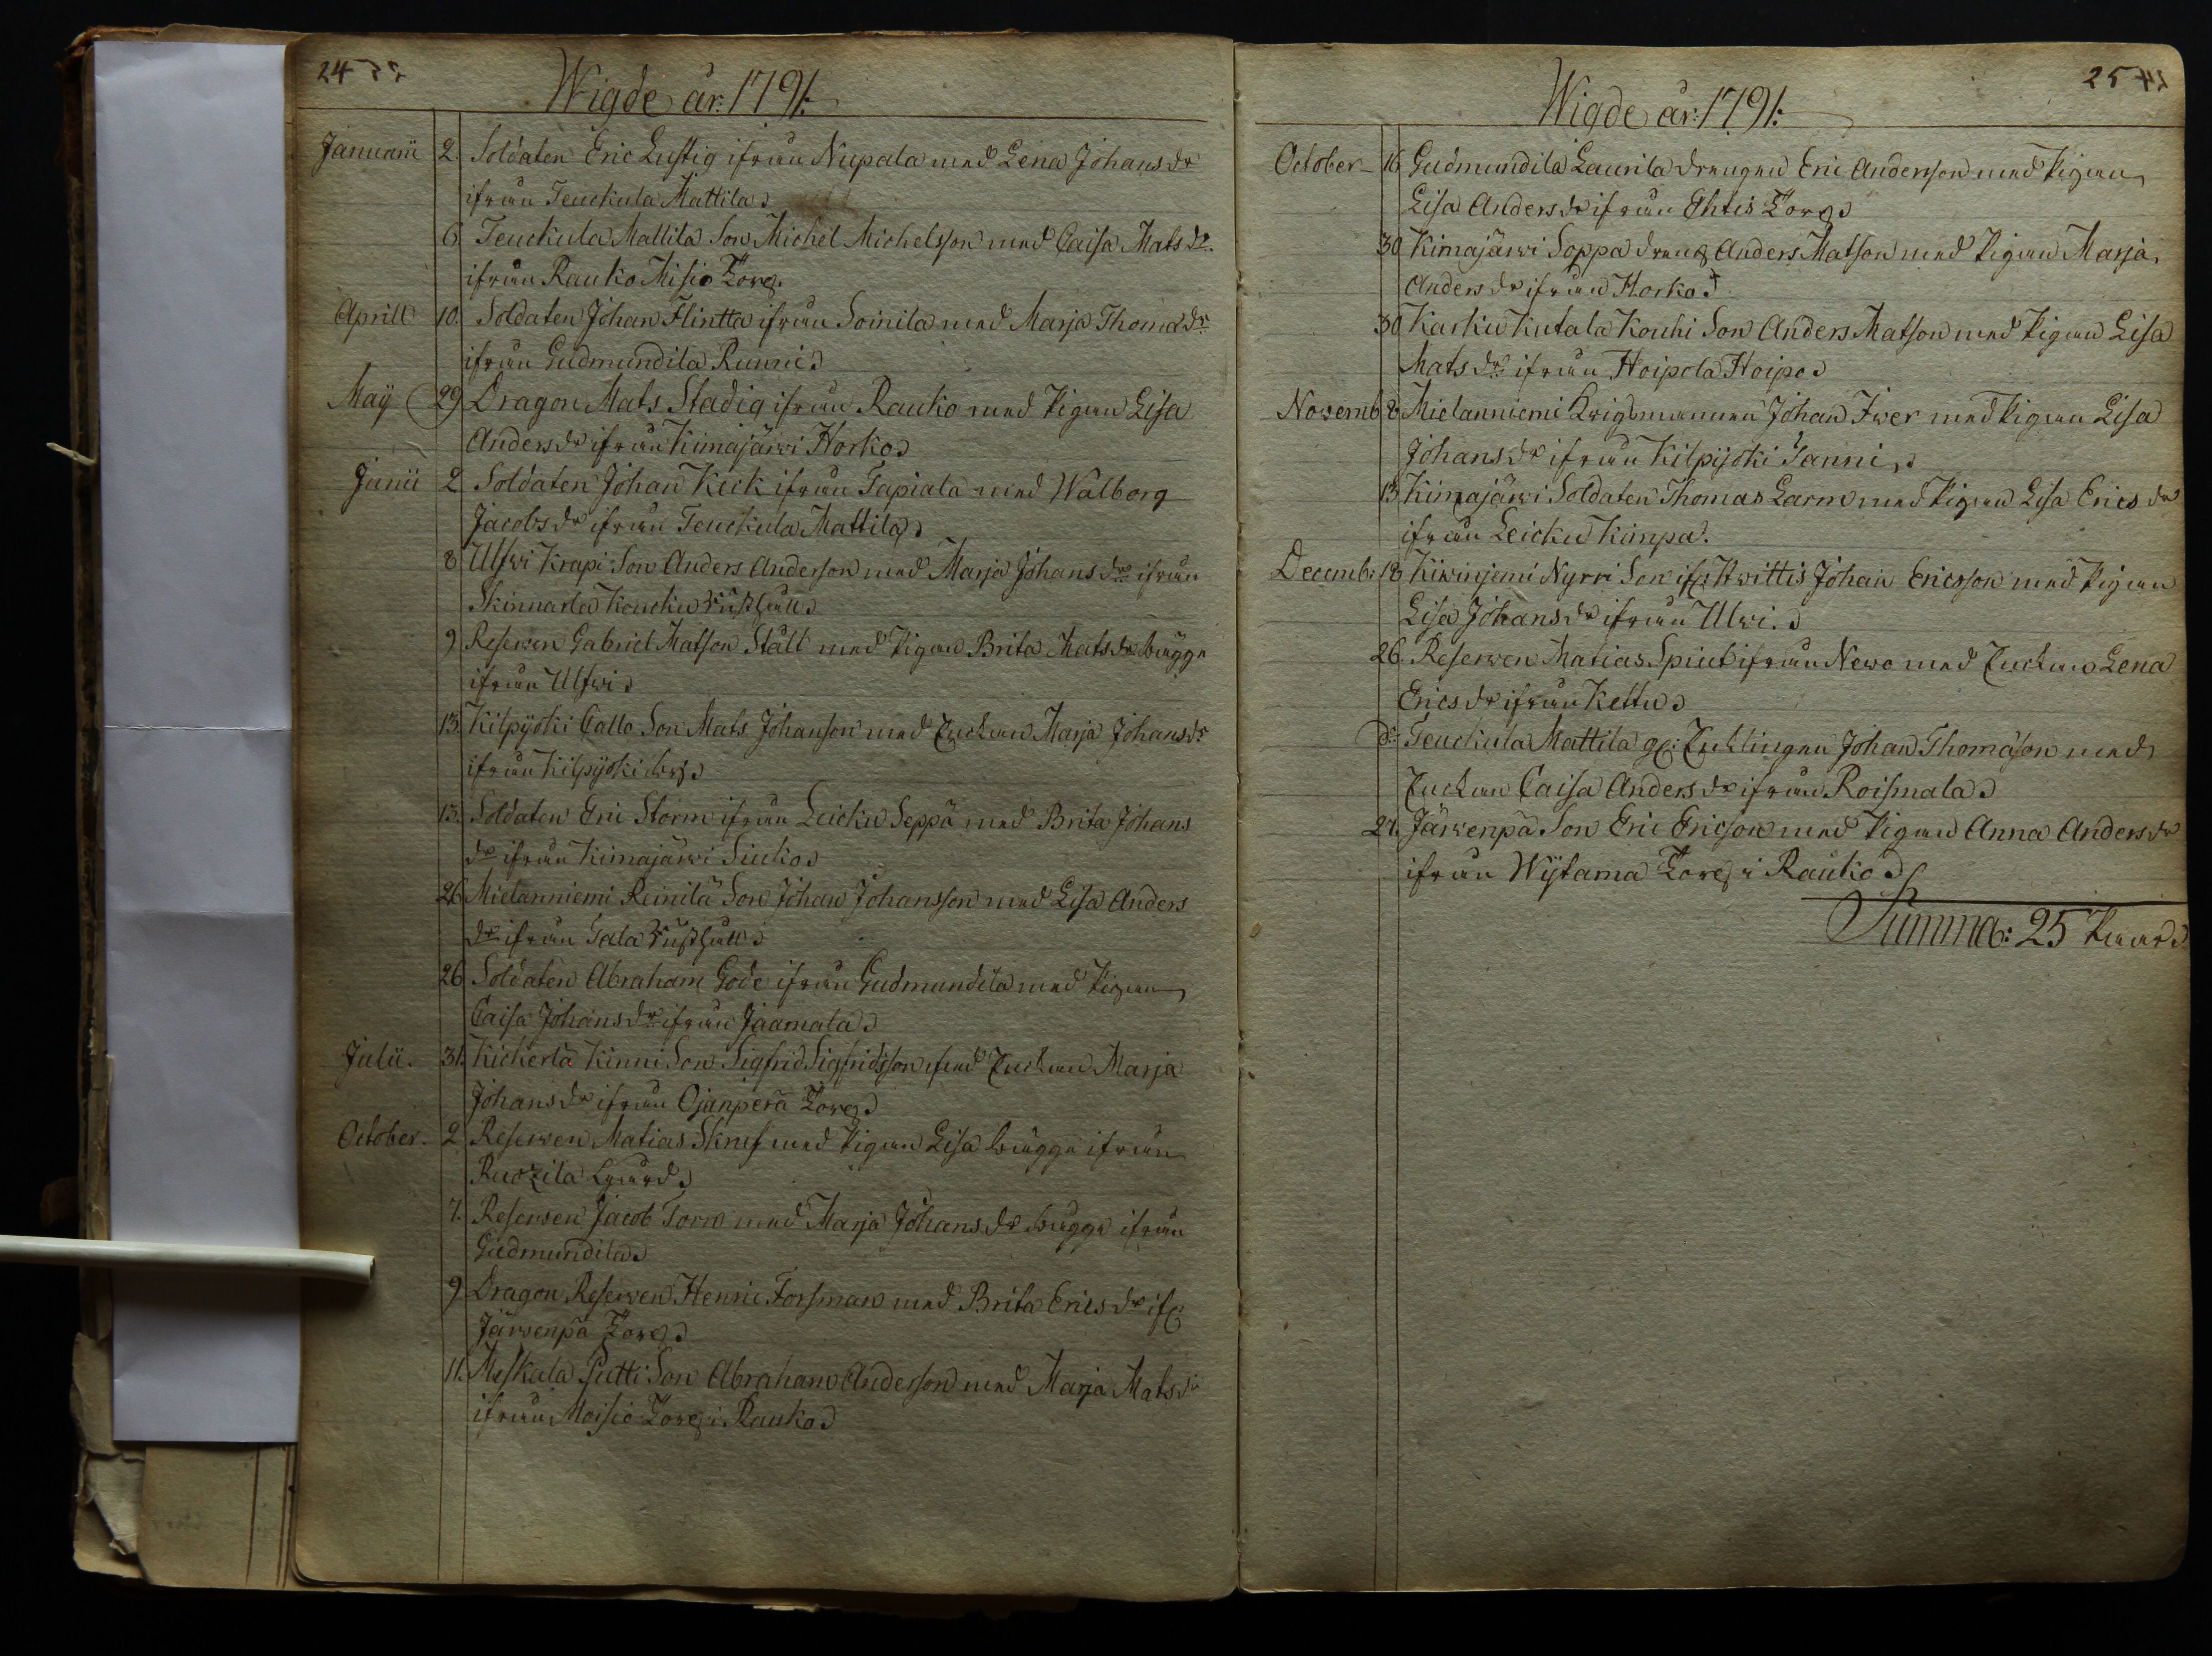 24
Wigde år: 1791:
Januarii 2. Soldaten Eric Lustig ifrån Nupala med Lena Johans dr
ifrån Teuckula Mattila
6 Teuckula Mattila Son Michel Michelsson med Caisa Mats dr.
ifrån Rauko Misio Torp.
Aprill 10. Soldaten Johan Flintta ifrån Soinila med Marja Thoma dr
ifrån Gudmundila Runni
Maÿ 29 Dragon Mats Stadig ifrån Rauko med Pigan Lisa
Anders dr ifrån Kimajärwi Horko
Junii 2 Soldaten Johan Keck ifrån Tapiala med Walborg
Jacobs dr ifrån Teuckula Mattila
8 Ulfwi Krapi Son Anders Anderson med Marja Johans dr ifrån
Skinnarla Koucku Rusthåll
9 Reserven Gabriel Matson Stålt med Pigan Brita Mats dr bägge
ifrån Ulfwi
13. Kilpÿoki Callo Son Mats Johanson med Enckan Marja Johans dr
ifrån Kilpÿoki
13. Soldaten Eric Storm ifrån Leicku Seppä med Brita Johans
dr ifrån Kimajärwi Siuko
26 Mielanniemi Reinilä Son Johan Johansson med Lisa Anders
dr ifrån Tala Rusthåll
26 Soldaten Abraham Gode ifrån Gudmundila med Pigan
Caisa Johans dr ifrån Jaamala
Julii. 31. Kickerlä Kinni Son Sigfrid Sigfridsson med Enckan Marja
Johans dr ifrån Ojanperä Torp
October. 2 Reserven Matias Skref med Pigan Lisa bägge ifrån
Ruozila Lgård
7. Reserven Jacob Torn med Marja Johans dr bägge ifrån
Gudmundila
9 Dragon Reserven Henric Forsman med Brita Erics dr if:
Järwenpä Torp
11. Meskala Putti Son Abraham Anderson med Marja Mats dr
ifrån Moisio Torp i Rauko
25
Wigde år: 1791:
October 16 Gudmundila Laurila drengen Eric Anderson med Pigan
Lisa Anders dr ifrån Ehtis Torp
30 Kimajärwi Soppa dreng Anders Matson med Pigan Marja
Anders dr ifrån Horko
30 Karku Kutala Kouhi Son Anders Matson med Pigan Lisa
Mats dr ifrån Hoipola Hoipo
Novemb 8 Mielanniemi Krigsmannen Johan Iwer med Pigan Lisa
Johans dr ifrån Kilpijoki Tanni
13 Kimajärwi Soldaten Thomas Larm med Pigan Lisa Erics dr
ifrån Leicku Kimpa.
Decemb: 18 Kiwinjemi Nyrri Son if: Hwittis Johan Ericsson med Pigan
Lisa Johans dr ifrån Ulwi.
26. Reserven Matias Spiut ifrån Newo med Enckan Lena
Erics dr ifrån Kettu
d:o Teuckula Mattila Enklingen Johan Thomason med
Enckan Caisa Anders dr ifrån Roismala
27. Järwenpä Son Eric Ericson med Pigan Anna Anders dr
ifrån Wÿtama Torp i Rauko
Summa: 25 Paar